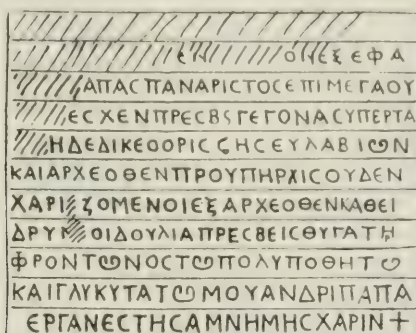 ΕΞΕΦΑ
ΑΠΑCΠΑΝΑΡΙCΤΟCΕΠΙΜΕΓΑΟΥ
ΕCΧΕΝΠΡΕCΒSΓΕΓΟΝΑCΥΠΕΡΤΑ
ΗΔΕΔΙΚΕΟΟΡΙCΖΗCΕΥΛΑΒΙⲰΝ
ΚΑΙΑΡΧΕΟΘΕΝΠΡΟΥΠΗΡΧΙCΟΥΔΕΝ
ΧΑΡΙ ΖΟΜΕΝΟΙΕΞΑΡΧΕΟΘΕΝΚΑΘΕΙ
ΔΡΥ ΟΙΔΟΥΛΙΑΠΡΕCΒΕΙCΘΥΓΑΤΗ
ΦΡΟΝΤⲰΝΟCΤⲰΠΟΛΥΠΟΘΗΤⲰ
ΚΑΙΓΛΥΚΥΤΑΤⲰΜΟΥΑΝΔΡΙΠΑΠΑ
ΕΡΓΑΝΕCΤΗCΑΜΝΗΜΗCΧΑΡΙΝ+